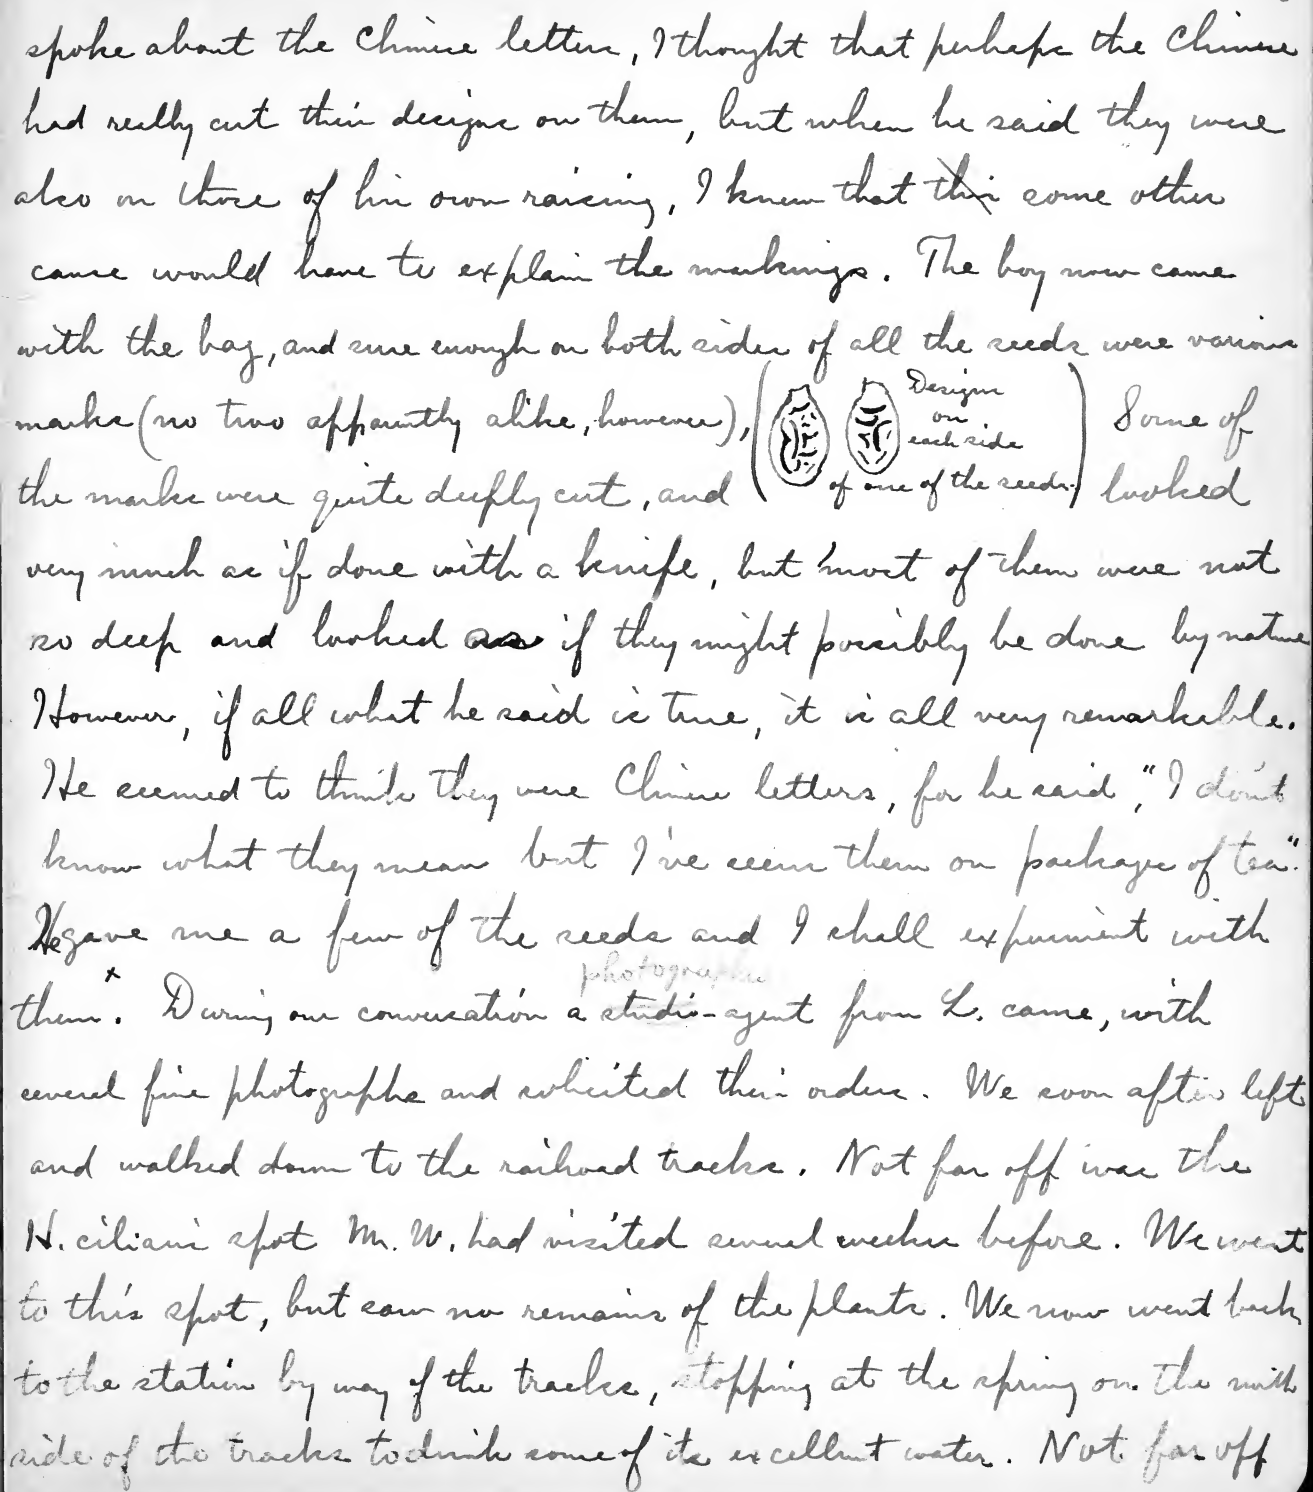 spoke about the Chinese letters, I thought that perhaps the Chinese
had really cut their designs on them, but when he said they were
also on those of his own raising, I knew that this some other
cause would have to explain the markings. The boy now came
with the bag, and sure enough on both sides of all the seeds were various
marks (no two apparently alike, however), ( Designs
on
each side
of one of the seeds.) Some of
the marks were quite deeply cut, and looked
very much as if done with a knife, but most of them were not
so deep and looked as if they might possibly be done by nature
However, if all what he said is true, it is all very remarkable.
He seemed to think they were Chinese letters, for he said, "I don't
know what they mean but I've seen them on packages of tea".
He gave me a few of the seeds and I shall experiment with
photographic
them.x During our conversation a studio-agent from L. came, with
several fine photographs and solicited their orders. We soon after left
and walked down to the railroad tracks. Not far off was the
H. ciliaris spot Mr. W. had visited several weeks before. We went
to this spot, but saw no remains of the plants. We now went back
to the station by way of the tracks, stopping at the spring on the north
side of the tracks to drink some of its excellent water. Not far off